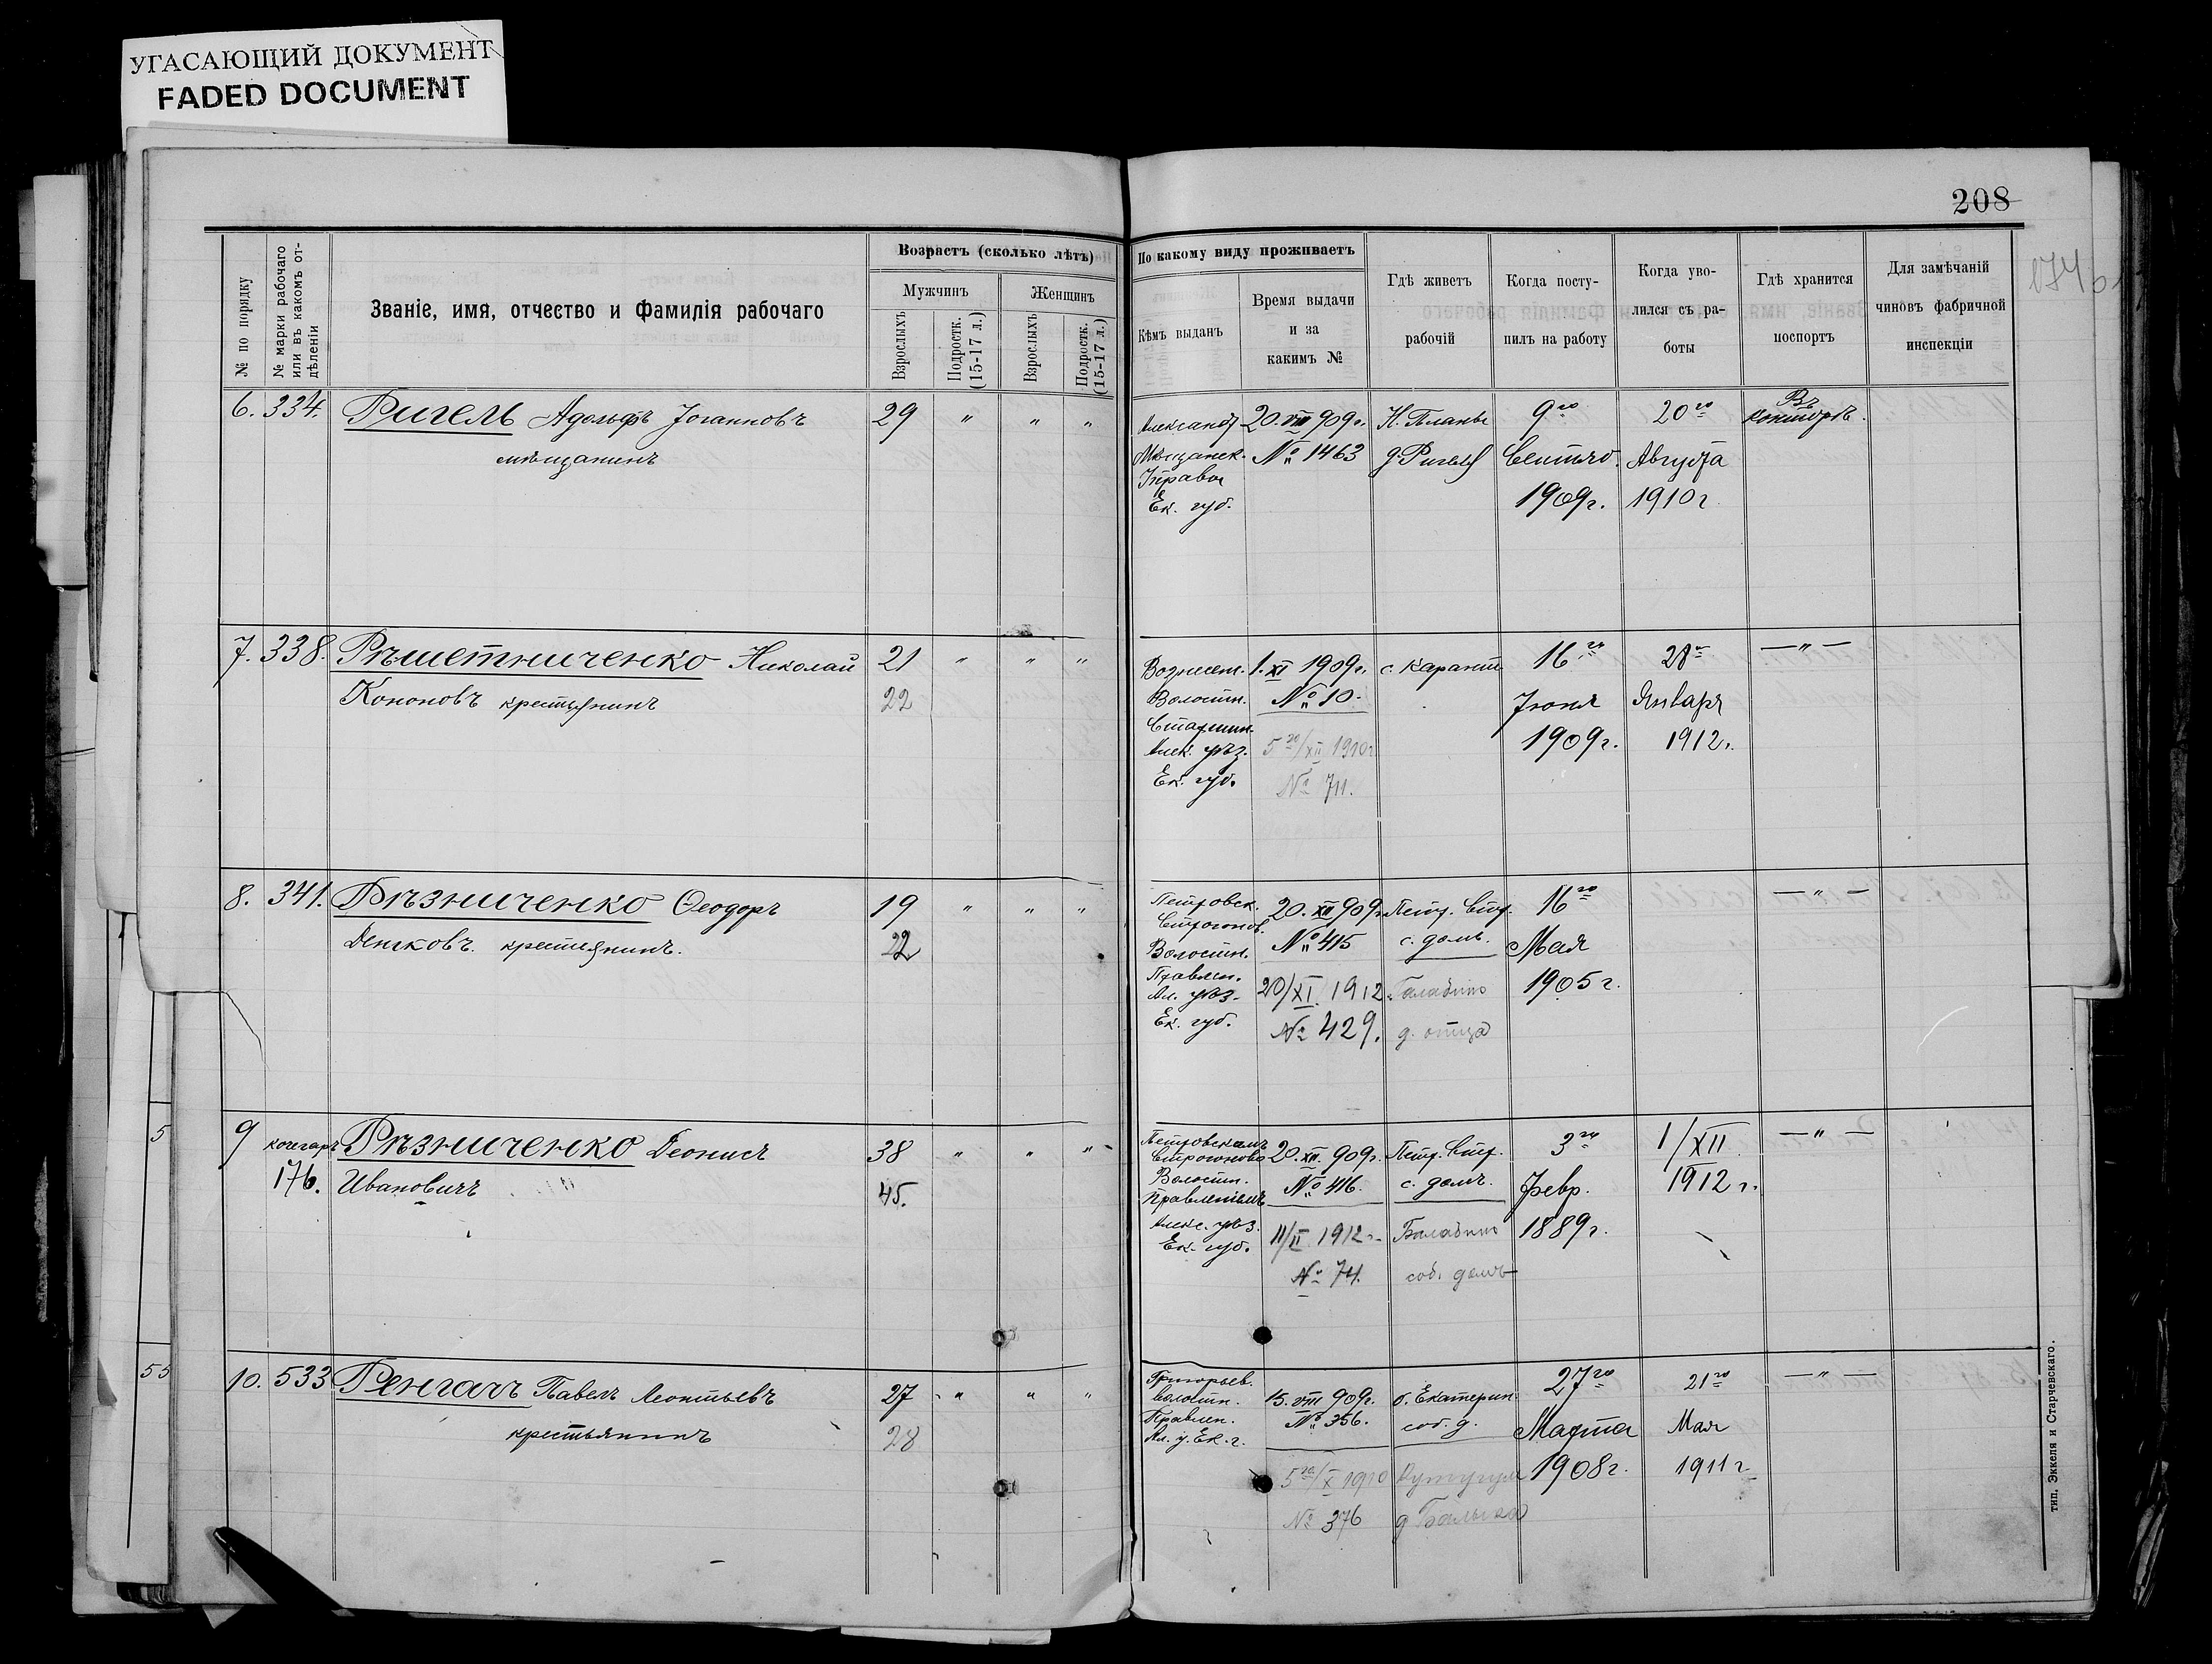 УГАСАЮЩИЙ ДОКУМЕНТ
FADED DOCUMENT
208
№ по порядку
№ марки рабочаго или въ какомъ отдѣленіи
Званіе, имя, отчество и фамилія рабочаго
Возрастъ (сколько лѣтъ)
Мужчинъ
Женщинъ
Взрослыхъ
Подростк. (15-17 л.)
Взрослыхъ
Подростк. (15-17 л.)
По какому виду проживаетъ
Кѣмъ выданъ
Время выдачи
и за
какимъ №
Гдѣ живетъ
рабочій
Когда посту-
пилъ на работу
Когда уво-
лился съ ра-
боты
Гдѣ хранится
поспортъ
Для замѣчаній
чиновъ фабричной
инспекціи
6. 334. Ригель Адольфъ Іоганновъ 29 " " "
мѣщанинъ
Александ
Мѣщанск.
Управы
Ек. губ.
20. VIII 909г.
№ 1463
Н. Планы
д Ригель
9го
Сентяб.
1909г.
20го
Августа
1910г
Въ
конторѣ.
7. 338. Рѣшетниченко Николай 21 " " "
Кононовъ крестьянинъ 22
Вознесен.
Волостн.
Старшин.
Алек. уѣз.
Ек. губ.
1. XI 1909г.
№ 10.
5го/XII 1910г
№ 711.
с. Карант
16го
Іюня
1909г.
28го
Январь
1912г.
— " —
8. 341. Рѣзниченко Ѳеодоръ 19 " " "
крестьянинъ. 22
Петровск.
Строгонов.
Волостн.
Правлен.
Ал. уѣз.
Ек. губ.
20. XII 909г.
№ 415
20/XI 1912.
№ 429.
Петр. Стр.
с. домъ.
д. отца
16го
Мая
1905г.
— " —
9 кочегаръ Рѣзниченко Деонисъ 38 " " "
176. Ивановичъ 45.
Петровскимъ
Строгоново
Волостн.
Правленіемъ
Алекс. уѣз.
Ек. губ.
20. XII. 909г.
№ 416.
11/II 1912г.
№ 74.
Петр. Стр.
с. домъ.
Балабино
соб. домъ
3го
Февр.
1889г.
1/XII
1912г.
— " —
10. 533 Ренгачъ Павелъ Леонтьевъ 27 " " "
крестьянинъ 28
Григорьев.
Волостн.
Правлен.
Ал. у. Ек. г.
15. VIII 909г.
№ 356.
5го/X 1910
№ 376
б. Екатерин.
соб. д.
27го
Марта
1908г.
21го
Мая
1911г
— " —
5
55
тип. Эккеля и Старчевскаго.